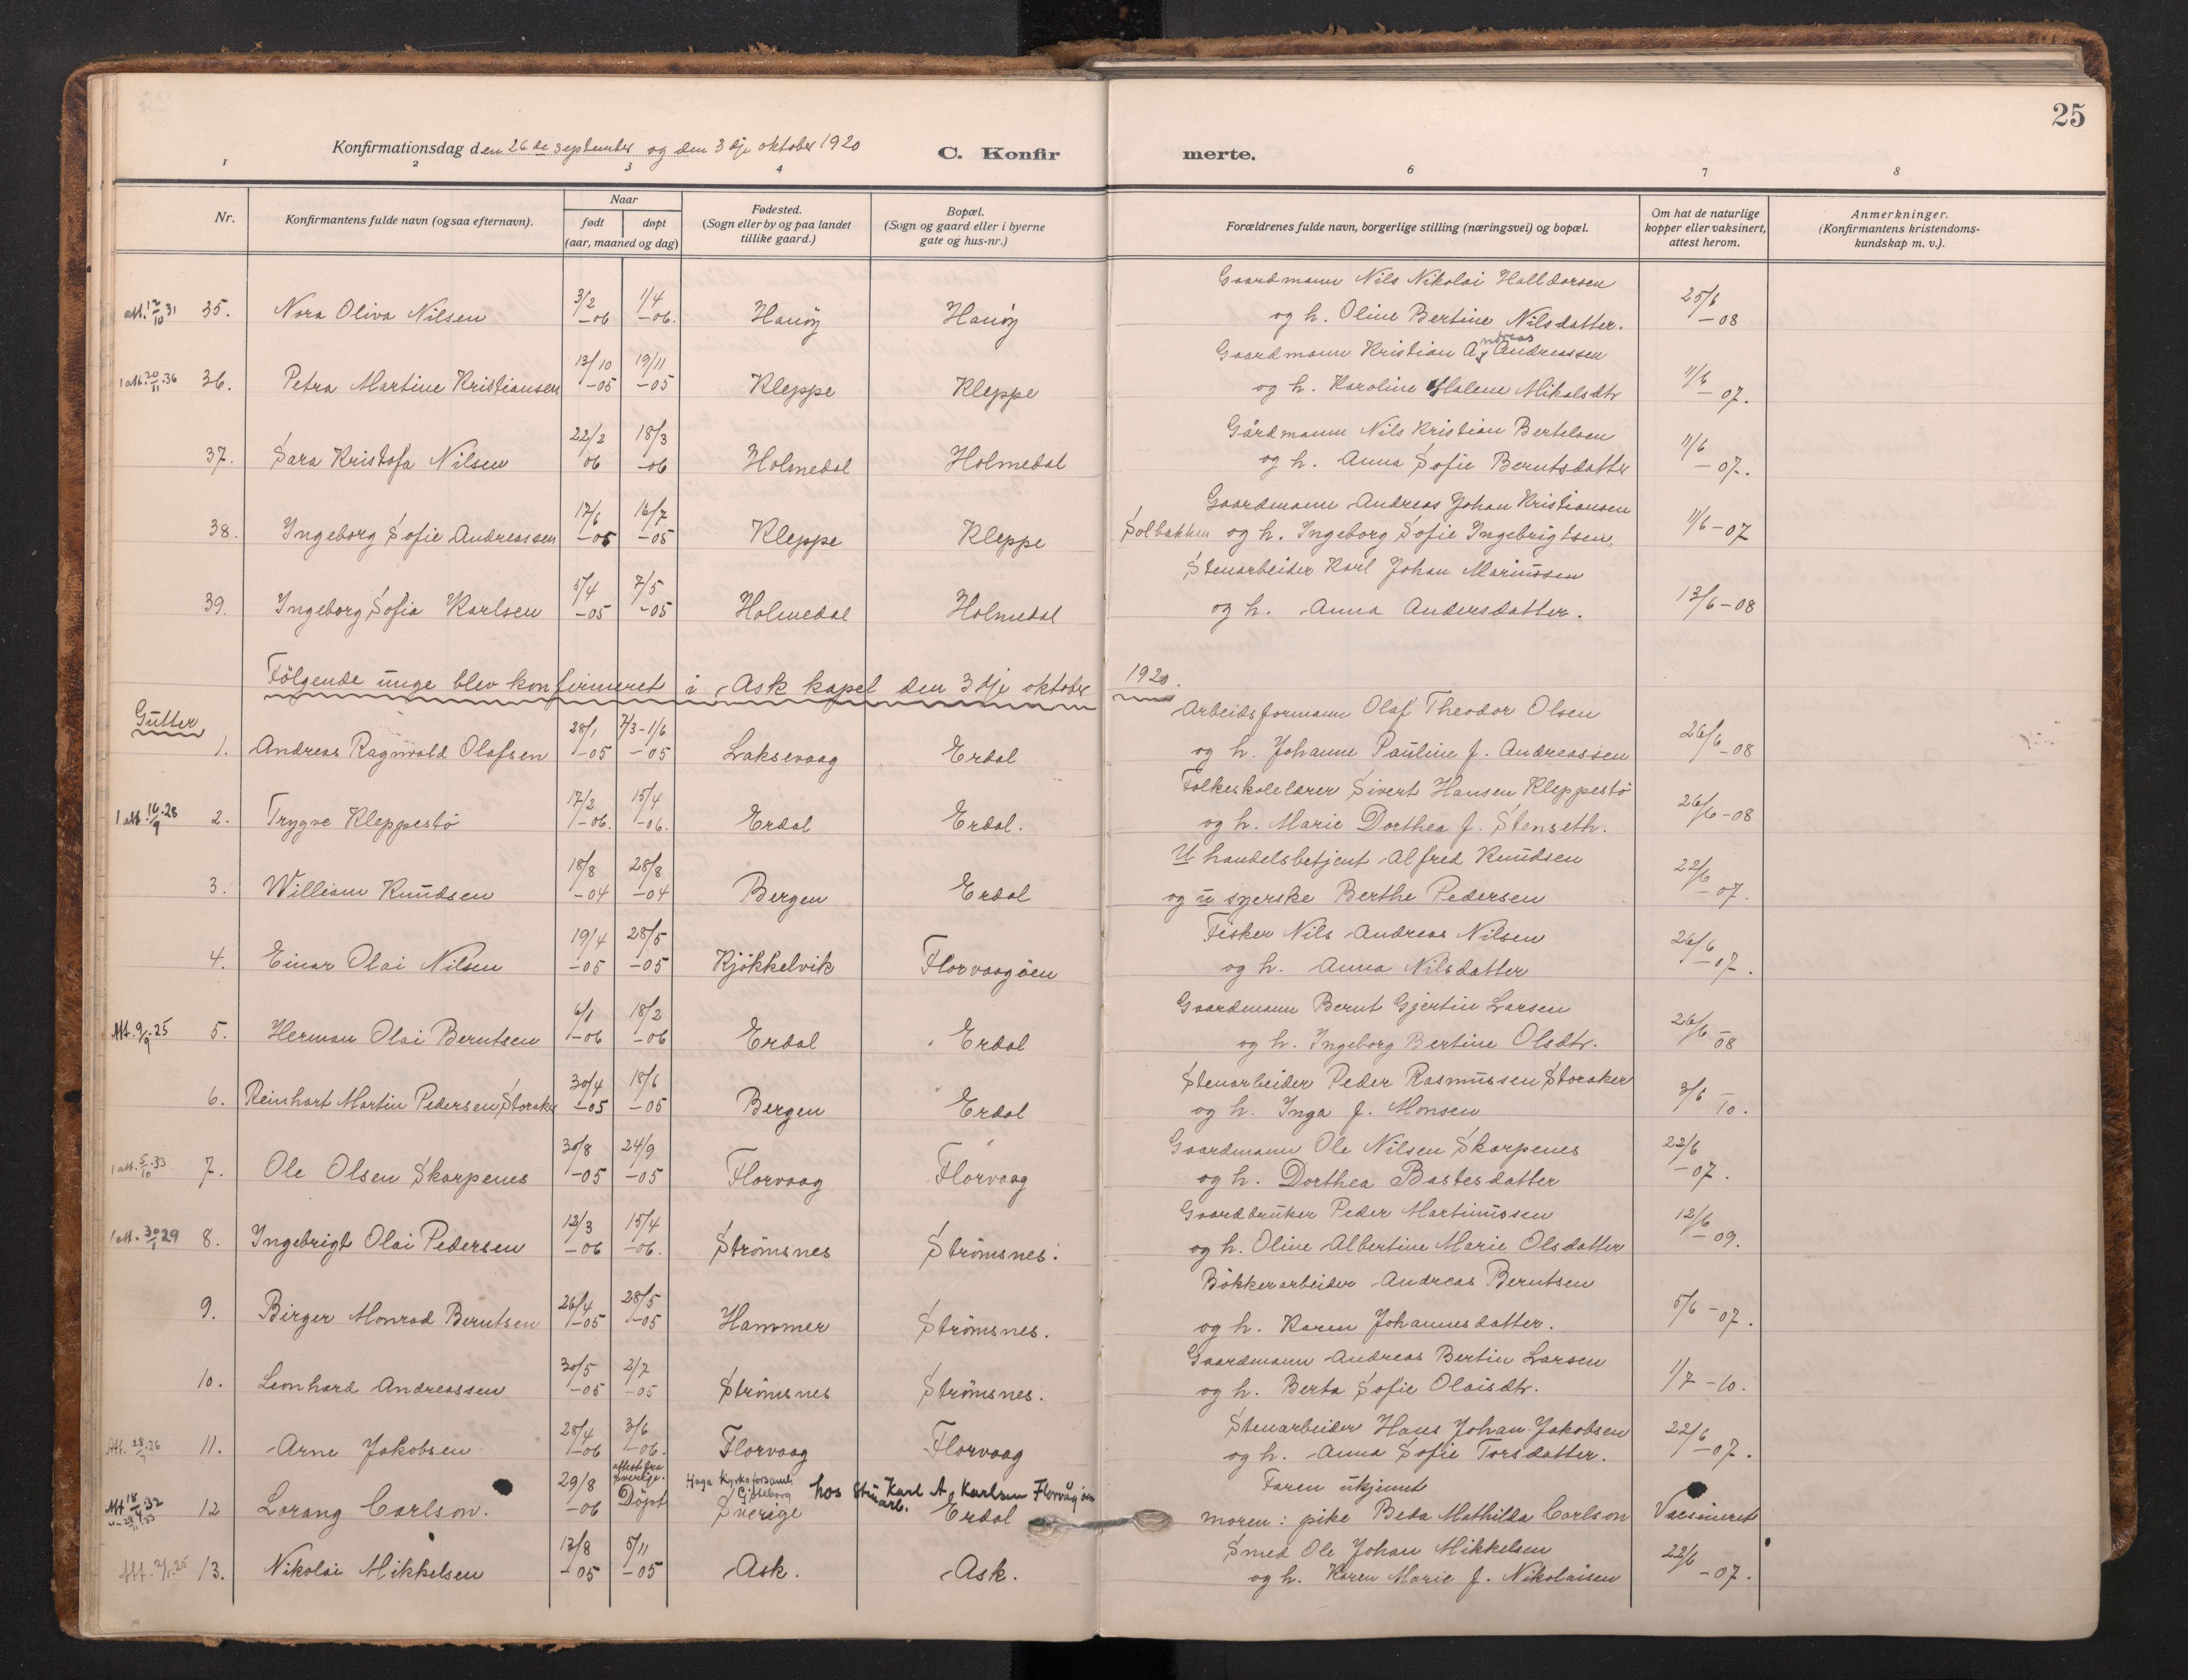 25
Konfirmationsdag den 26de september og den 3dje oktober 1920 C. Konfirmerte.
1 2 3 4 6 7 8
Nr. Konfirmantens fulde navn (ogsaa efternavn). Naar født døpt (aar, maaned og dag) Fødested. (Sogn eller by og paa landet tillike gaard.) Bopæl. (Sogn og gaard eller i byerne gate og hus-nr.) Forældrenes fulde navn, borgerlige stilling (næringsvei) og bopæl. Om hat de naturlige kopper eller vaksinert, attest herom. Anmerkninger. (Konfirmantens kristendomskundskap m. v.).
Gaardmann Nils Nikolai Halldorsen
att. 12/10 31 35. Nora Oliva Nilsen 3/2 -06 1/4 -06. Hanöy Hanöy og h. Oline Bertine Nilsdatter. 25/6 -08
Gaardmann Kristian Andreas Andreassen
1 att. 20/11 36 36. Petra Martine Kristiansen 13/10 -05 19/11 -05 Kleppe Kleppe og h. Karoline Malene Mikalsdtr 11/6 -07.
Gårdmann Nils Kristian Bertelsen
37. Sara Kristofa Nilsen 22/2 06 18/3 -06 Holmedal Holmedal og h. Anna Sofie Berntsdatter 11/6 -07.
Gaardmann Andreas Johan Kristiansen
38. Ingeborg Sofie Andreassen 17/6 -05 16/7 -05 Kleppe Kleppe Solbakken og h. Ingeborg Sofie Ingebrigtsen. 11/6 -07
Stenarbeider Karl Johan Mariussen
39. Ingeborg Sofia Karlsen 5/4 -05 7/5 -05 Holmedal Holmedal og h. Anna Andersdatter. 13/6 -08
Fölgende unge blev konfirmeret i Ask kapel den 3dje oktober 1920.
Gutter
Arbeidsformann Olaf Theodor Olsen
1. Andreas Ragnvald Olafsen 28/1 -05 7/3 - 1/6 -05 Laksevaag Erdal og h. Johanne Pauline f. Andreassen 26/6 -08
Folkeskolelærer Sivert Hansen Kleppestö
1 att. 16/9 28 2. Trygve Kleppestö 17/2 -06. 15/4 -06. Erdal Erdal. og h. Marie Dorthea f. Stenseth. 26/6 -08
U handelsbetjent Alfred Knudsen
3. William Knudsen 18/8 -04 28/8 -04 Bergen Erdal og u syerske Berthe Pedersen 22/6 -07.
Fisker Nils Andreas Nilsen
4. Einar Olai Nilsen 19/4 -05 28/5 -05 Kjökkelvik Florvaagöen og h. Anna Nilsdatter 26/6 -07.
Gaardmann Bernt Gjertin Larsen
Att. 9/9 25 5. Herman Olai Berntsen 6/1 -06 18/2 -06 Erdal Erdal og h. Ingeborg Bertine Olsdtr. 26/6 -08
Stenarbeider Peder Rasmussen Storaker
6. Reinhart Martin Pedersen Storaker 30/4 -05 18/6 -05 Bergen Erdal og h. Inga f. Monsen 3/6 -10.
Gaardmann Ole Nilsen Skarpenes
1 att. 5/10 33 7. Ole Olsen Skarpenes 30/8 -05 24/9 -05 Florvaag Florvaag og h. Dorthea Bastesdatter 22/6 -07.
Gaardbruker Peder Martinussen
1 att. 30/1 29 8. Ingebrigt Olai Pedersen 12/3 -06 15/4 -06. Strömsnes Strömsnes. og h. Oline Albertine Marie Olsdatter 12/6 -09.
Bökkerarbeider Andreas Berntsen
9. Birger Monrad Berntsen 26/4 -05 28/5 -05 Hammer Strömsnes. og h. Karen Johannesdatter. 5/6 -07.
Gaardmann Andreas Bertin Larsen
10. Leonhard Andreassen 30/5 -05 2/7 -05 Strömsnes Strömsnes. og h. Berta Sofie Olaisdtr. 1/7 -10.
Stenarbeider Hans Johan Jakobsen
Att. 28/ 26 11. Arne Jakobsen 28/4 -06 3/6 -06. Florvaag Florvaag og h. Anna Sofie Torsdatter. 22/6 -07.
attest fra Sverige. Haga Kyrkoforsaml. Göteborg hos Stenarb. Karl A. Karlsen Florvågøen Faren ukjennt
Att 18/ 32 12 Lorang Carlson. 29/8 -06 Döpt Sverige Erdal moren: pike Beda Mathilda Carlson Vacsineret
Smed Ole Johan Mikkelsen
Att. 2/1 25 13. Nikolai Mikkelsen 13/8 -05 5/11 -05 Ask. Ask. og h. Karen Marie f. Nikolaisen 22/6 -07.